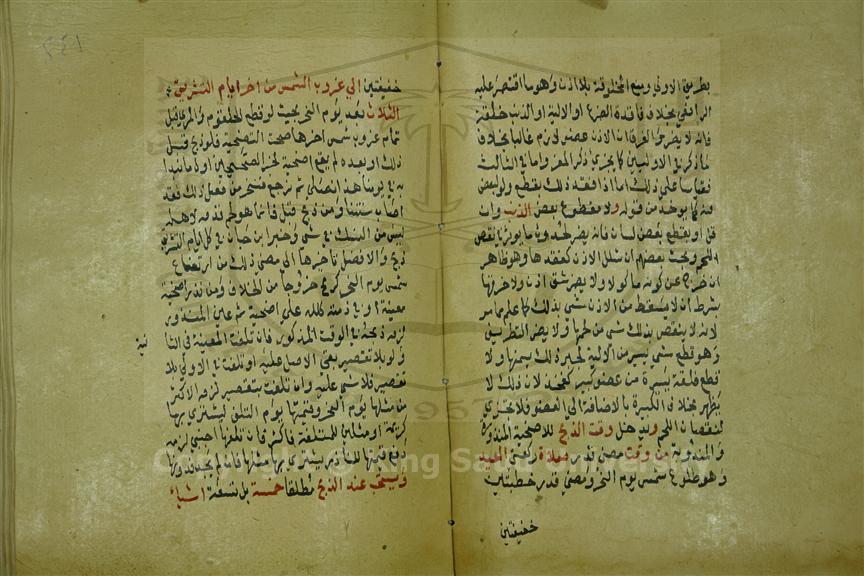 بطريق الاولي ويمنع المخلوقة بلا اذن وهو ما اقتصر عليه
الرافعي بخلاف فاقدة الضرع او الالية او الذنب خلقة
فانه لا يضر والفرق ان الاذن عضو لازم غالبا بخلاف
ما ذكر في الاوليين كما يجزي ذكر المعز واما في الثالث
فقياسا علي ذلك اما اذا فقد ذلك بقطع ولو لبعض
منه كما يوخذ من قوله ولا مقطوع بعض الذنب وان
قل او بقطع بعض لسان فانه يضر لحدوث ما يوثر في نقص
اللحم وبحث بعضهم ان شلل الاذن كفقدها وهو ظاهر
ان خرج عن كونه ماكولا ولا يضر شق اذن ولا خرقها
بشرط ان لا يسقط من الاذن شي بذلك كما علم مما مر
لانه لا ينقص بذلك شي من لحمها ولا يضر التطريف
وهو قطع شي يسير من الالية لجبر ذلك بسمنها ولا
قطع فلقة يسيرة من عضو كبير كفخذ لان ذلك لا
يظهر بخلاف الكبيرة بالاضافة الي العضو فلا يجزي
لنقصان اللحم ويدخل وقت الذبح للاضحية المندوبة
والمنذورة من وقت مضي قدر صلاة ركعتي العيد
وهو طلوع شمس يوم النحر ومضي قدر خطبتين
خفيفتين
٢٤١
خفيفتين الي غروب الشمس من اخر ايام التشريق
الثلاث بعد يوم النحر بحيث لو قطع الحلقوم والمري قبل
تمام غروب شمس اخرها صحت التضحية فلو ذبح قبل
ذلك او بعده لم يقع اضحية لخبر الصحيحين اول ما نبدا
به في يومنا هذا نصلي ثم نرجع فننحر من فعل ذلك فقد
اصاب سنتنا ومن ذبح قبل فانما هو لحم قدمه لاهله
ليس من النسك في شي وخبر ابن حبان في كل ايام التشريق
ذبح والافضل تاخيرها الي مضي ذلك من ارتفاع
شمس يوم النحر كرمح خروجا من الخلاف ومن نذر اضحية
معينة او في ذمته كلله علي اضحية ثم عين المنذور
لزمه ذبحه في الوقت المذكور فان تلفت المعينة في الثا
نية
ولو بلا تقصير بقي الاصل عليه او تلفت في الاولي بلا
تقصير فلا شي عليه وان تلفت بتقصير لزمه الاكثر
من مثلها يوم النحر وقيمتها يوم التلف ليشتري بها
كريمة او مثلين للمتلفة فاكثر فان تلفها اجنبي لزمه
دفع قيمتها للناذر يشتري بها مثلها فان لم يجد فدونها
ويستحب عند الذبح مطلقا خمسة بل تسعة اشياء